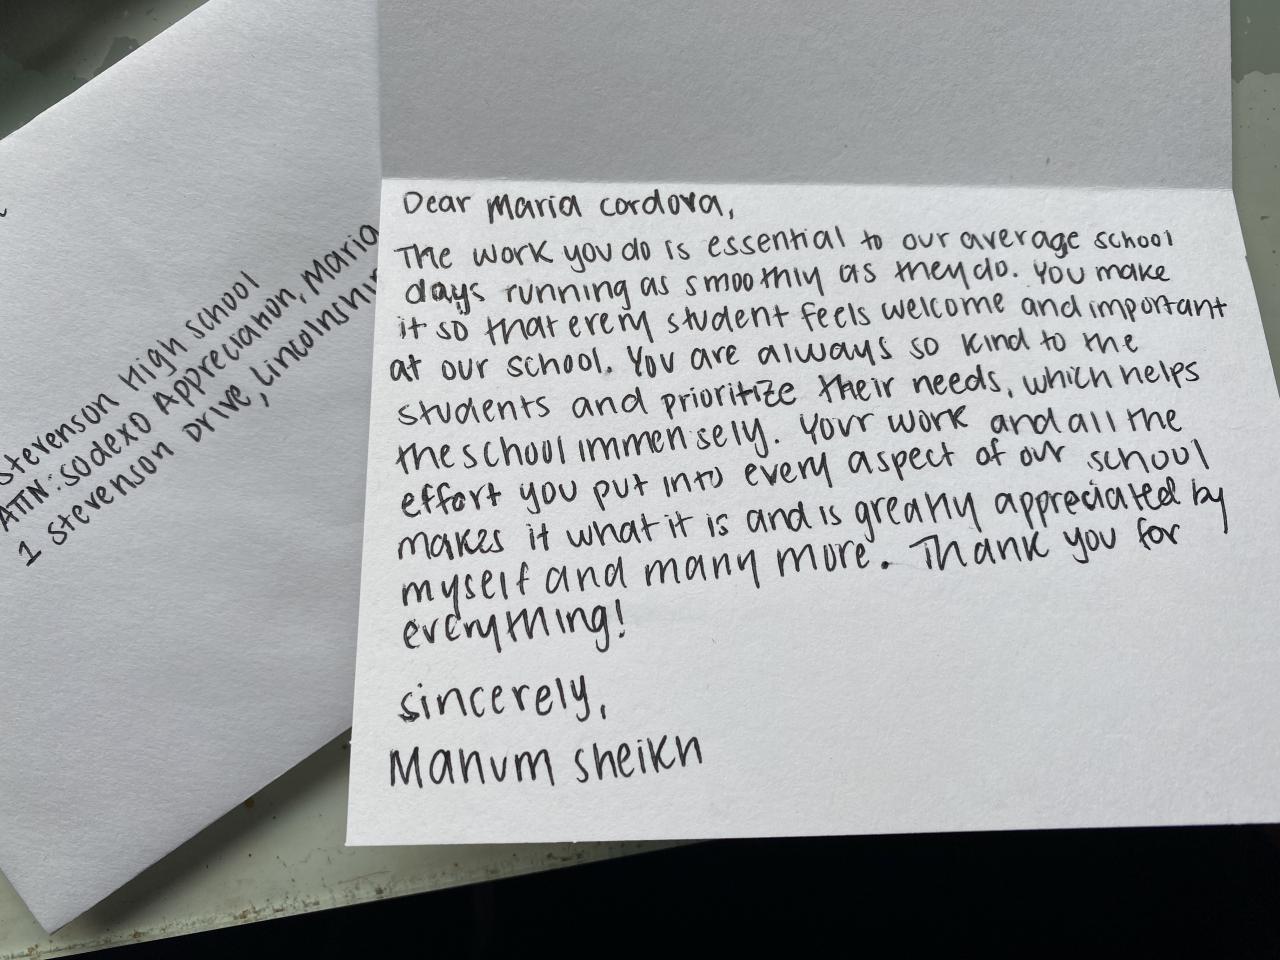 Stevenson High School
ATTN: Sodexo Appreciation, Maria
1 Stevenson Drive, Lincolnshir
Dear Maria Cordova,
The work you do is essential to our average school
days running as smoothly as they do. You make
it so that every student feels welcome and important
at our school. You are always so kind to the
students and prioritize their needs, which helps
the school immensely. Your work and all the
effort you put into every aspect of our school
makes it what it is and is greatly appreciated by
myself and many more. Thank you for
everything!
Sincerely,
Manum Sheikh